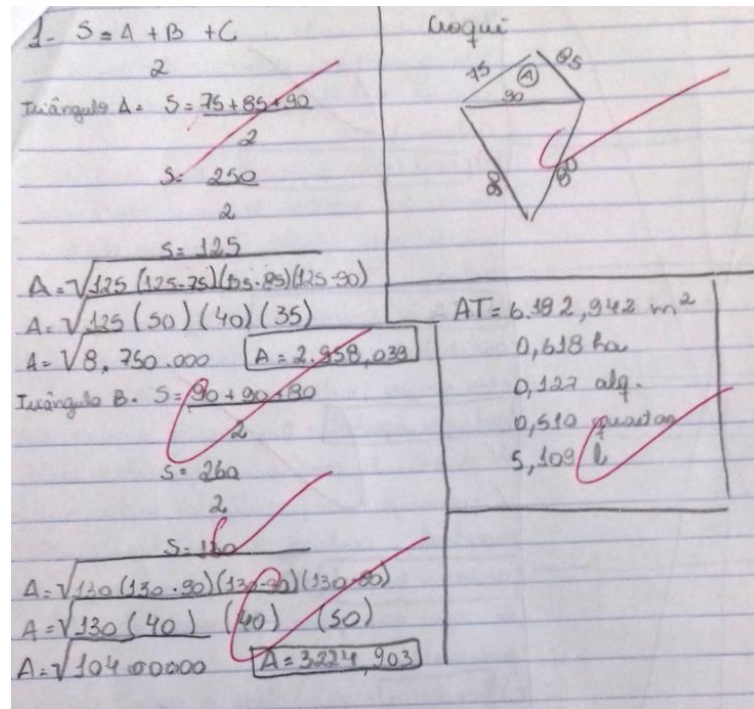 1- S = A + B + C
2
Triângulo A = S = 75 + 85 + 90
2
S = 250
2
S = 125
A = √125 (125-75)(125-85)(125-90)
A = √125 (50) (40) (35)
A = √8.750.000 A = 2.958,039
Triângulo B = S = 90 + 90 + 80
2
S = 260
2
S = 130
A = √130 (130-90)(130-90)(130-80)
A = √130 (40) (40) (50)
A = √104.00000 A = 3224,903
Croqui
75 A 85
90
80
AT = 6.182,942 m²
0,618 ha
0,127 alq.
0,510 quartas
5,109 l